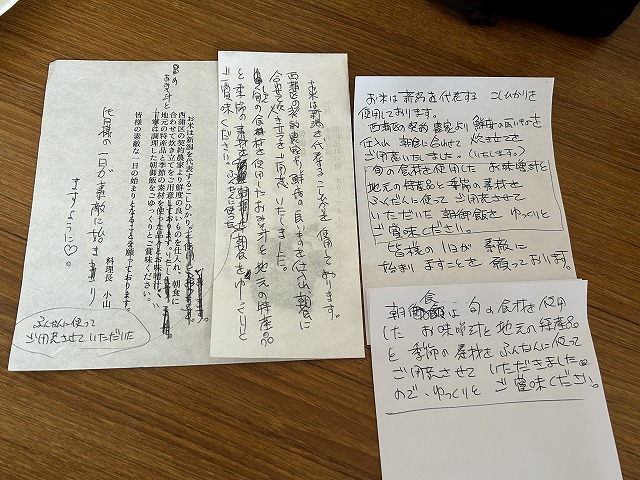 お米は新潟を代表するこしひかり。
西蒲区の契約農家より鮮度の良いものを仕入れ、朝食に
合わせて炊き立てをご用意しております。
地元の特産品と季節の素材を使った
丁寧に調理した朝御飯をごゆっくりとご賞味ください。
皆様の素敵な一日の始まりとなることを願っております。
料理長 小山
皆様の一日が素敵に始まり
ますように♡。
ふんだんに使って
ご用意させていただいた
お米は新潟を代表するこしひかりを使用しております。
西蒲区の契約農家より鮮度の良いものを仕入れ、朝食に
合わせ炊き立てをご用意いたしました。
旬の食材を使用したおみそ汁と地元の特産品
と季節の素材をふんだんに使った朝食をゆっくりと
ご賞味ください。
お米は新潟を代表する こしひかりを
使用しております。
西蒲区の契約農家より鮮度の良いものを
仕入れ 朝食に合わせて 炊き立てを
ご用意いたしました。(いたします。)
旬の食材を使用した お味噌汁と
地元の特産品と季節の素材を
ふんだんに使ってご用意させて
いただいた朝御飯をゆっくりと
ご賞味ください。
皆様の1日が素敵に
始まりますことを願っております。
朝食は旬の食材を使用
した お味噌汁と地元の特産品
と季節の素材をふんだんに使って
ご用意させていただきました
ので、ゆっくりとご賞味ください。